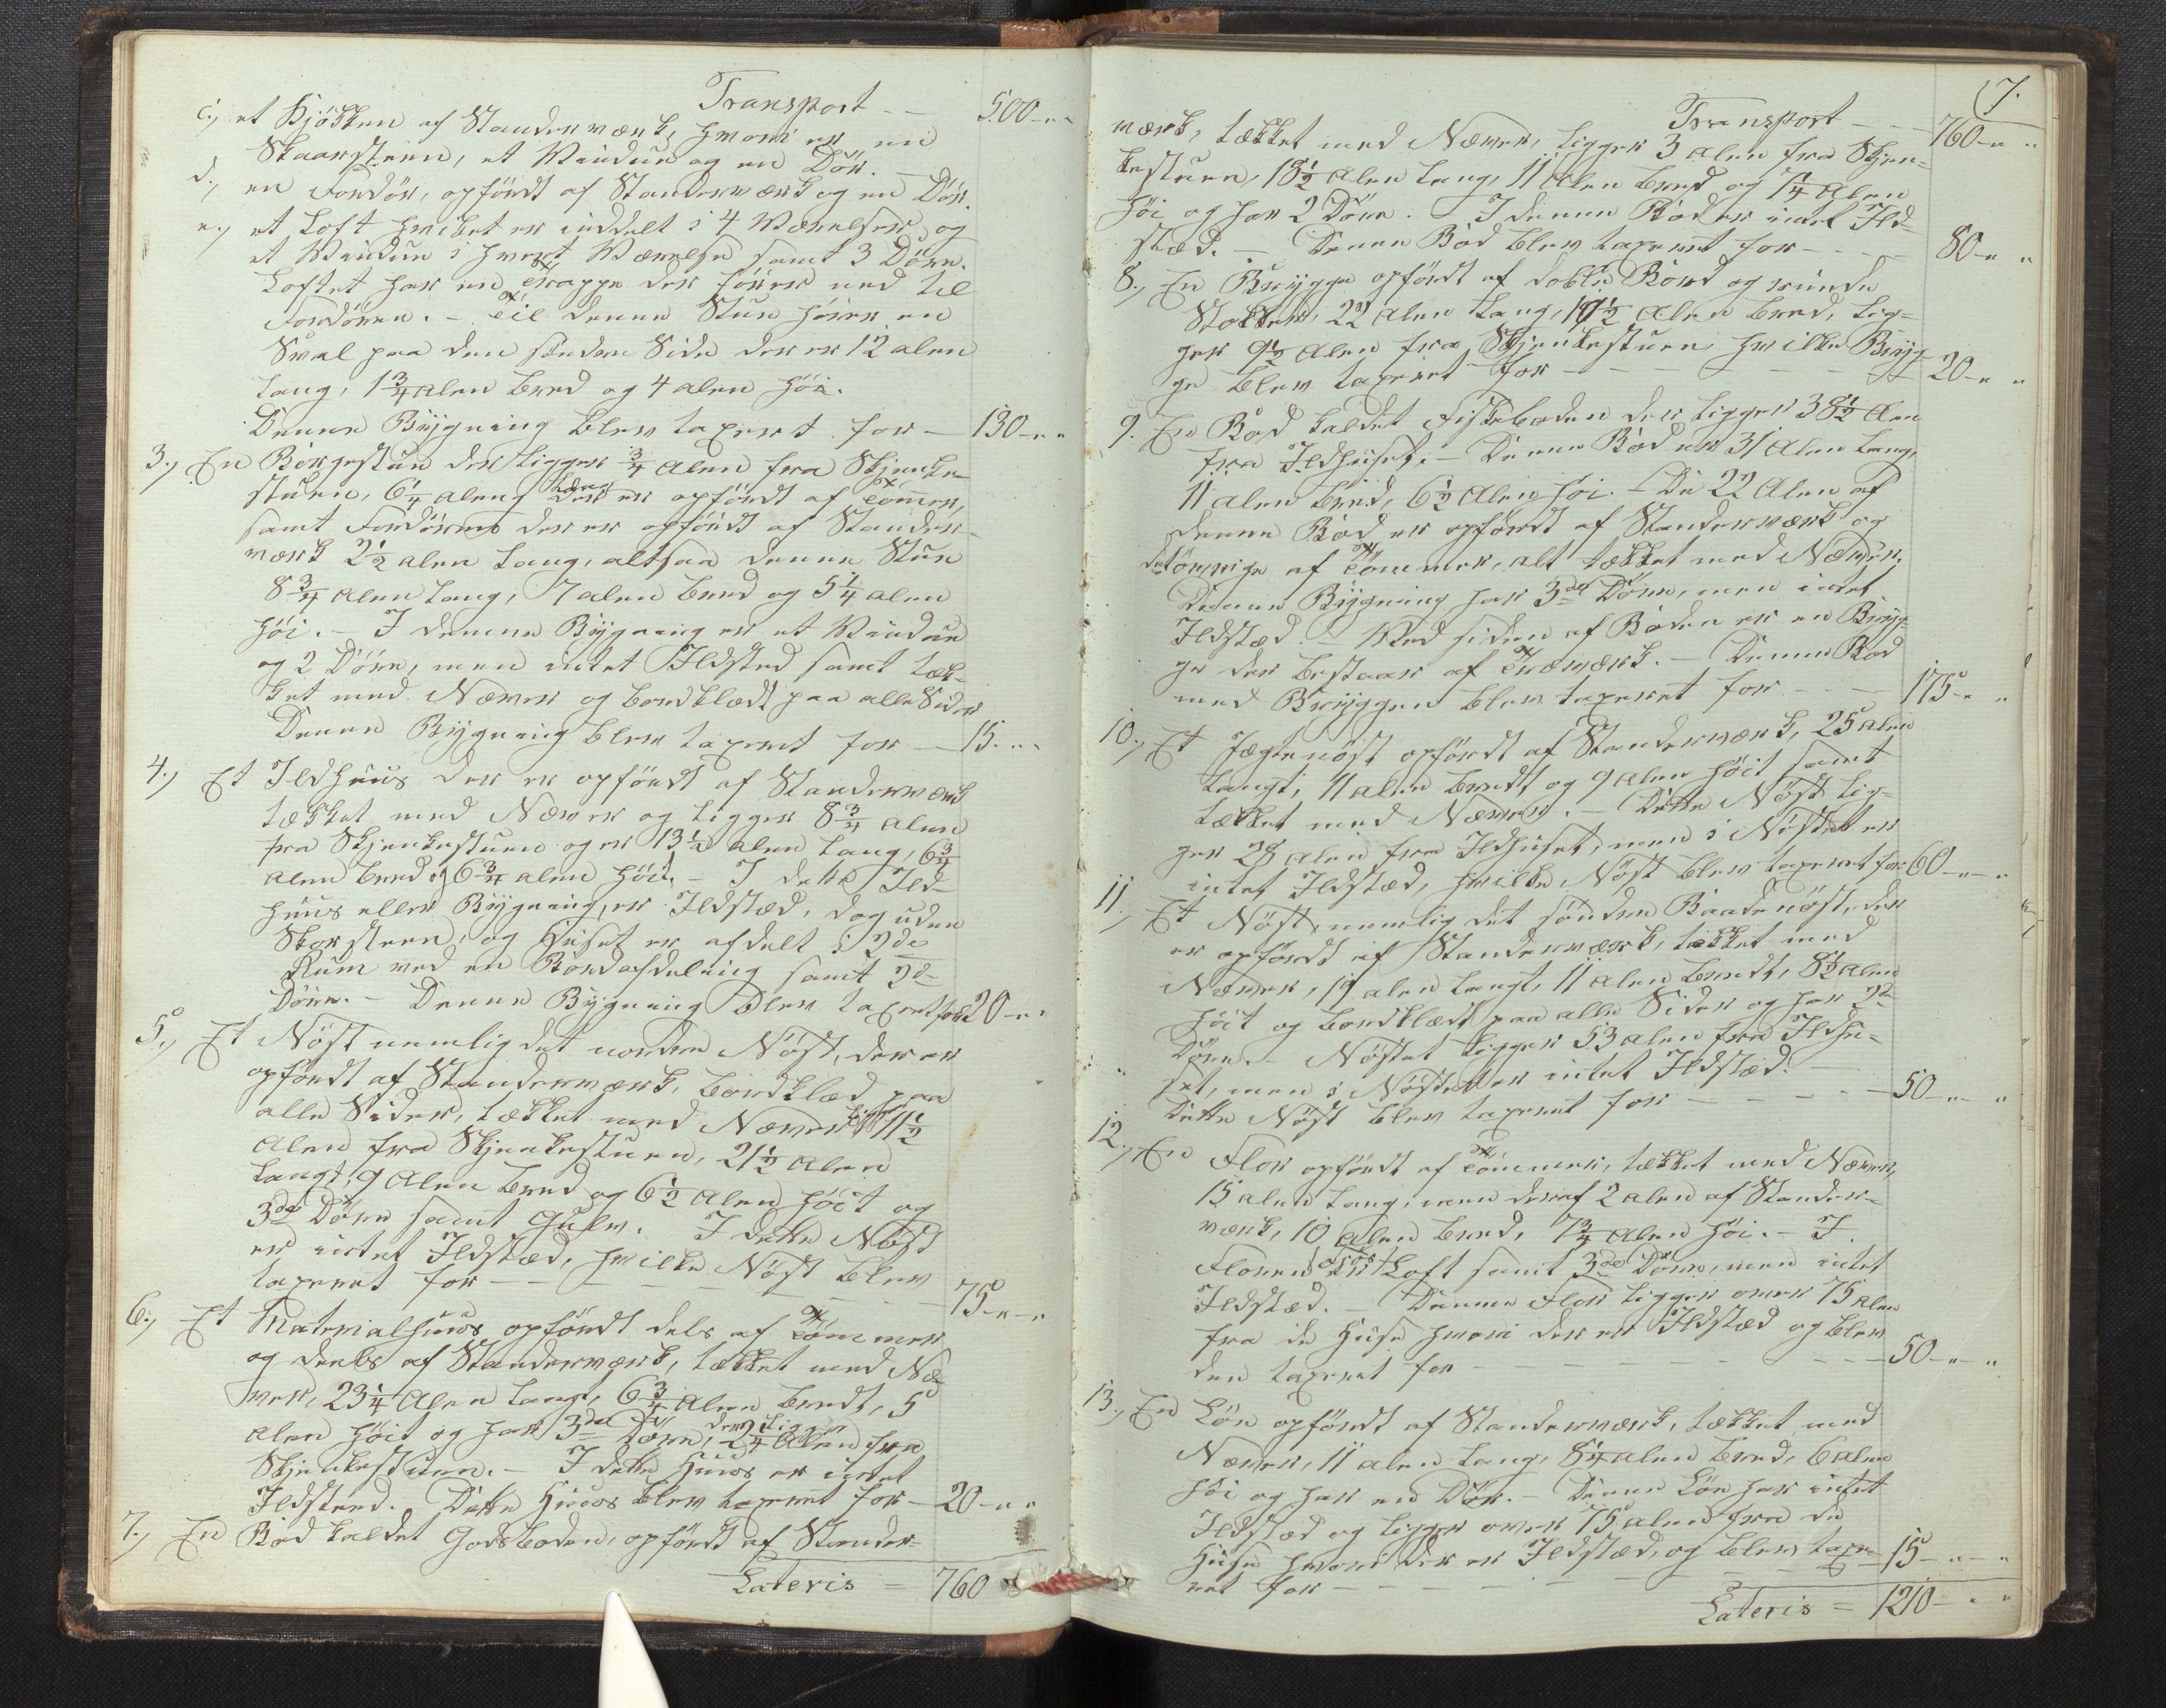 Transport -- 500-""
c.) et Kjökken af Standerværk, hvori er en
Skaarsteen, et Vindue og en Dör.
d.) en Fordör, opfördt af Standerværk og en Dör.
e.) et Loft hvilket er inddelt i 4 Værelser og
et Vindue i hvert Værelse samt 3 Döre.
Loftet har en Trappe der förer ned til
Fordören. - Til denne Stue hörer en
Sval paa den söndre Side der er 12 alen
lang, 1 3/4 alen bred og 4 alen höi.
Denne Bygning blev taxeret for - 130-""
3.) En Borgestue der ligger 3/4 Alen fra Skjenke-
stuen, 6 1/4 Alen lang der er opfördt af Tömmer,
samt Fordören der er opfördt af Stander-
værk 2 1/2 alen lang, altsaa denne Stue
8 3/4 alen lang, 7 alen bred og 5 1/4 alen
höi. - I denne Bygning er et Vindue
og 2 Döre, men intet Ildsted samt tæk-
ket med Næver og bordklædt paa alle Sider
Denne Bygning blev taxeret for - 15-""
4.) Et Ildhuus der er opfördt af Standerværk
tækket med Næver og ligger 8 3/4 alen
fra Skjenkestuen og er 13 1/2 alen lang, 6 3/4
alen bred og 6 3/4 alen höit. - I dette Ild-
huus eller Bygning, er Ildstæd, dog uden
Skorsteen, og Huset er afdelt i 2de
Rum ved en Bordafdeling samt 2de
Döre. - Denne Bygning blev taxeret for 20-""
5.) Et Nöst nemlig det nordre Nöst, der er
opfördt af Standerværk, bordklæd paa
alle Sider, tækket med Næver ligger 11 1/2
Alen fra Skjenkestuen, 21 1/2 Alen
langt, 9 Alen bred og 6 1/2 Alen höit og
3de Döre samt Gulv. I dette Nöst
er intet Ildstæd, hvilke Nöst blev
taxeret for - - - - 75-"-"
6.) Et Materialhuus opfördt dels af Tömmer
og deels af Standerværk, tækket med Næ-
ver, 23 1/4 Alen langt, 6 3/4 Alen bredt, 5
alen höit og har 3de Döre, der ligger 2 1/4 Alen fra
Skjenkestuen. - I dette Huus er intet
Ildsteed. Dette Huus blev taxeret for - 20-""
7.) En Bod kaldet Godsboden, opfördt af Stander-
Lateris = 760
7.
Transport - - 760-" "
værk, tækket med Næver, ligger 3 alen fra Skjen-
kestuen, 18 1/2 Alen lang, 11 Alen bred og 7 1/4 Alen
höi og har 2 Döre. I denne Bod er intet Ild-
stæd. - Denne Bod blev taxeret for - - - 80-" "
8.) En Brygge opfördt af doble Bord og runde
Stokker, 22 Alen lang, 19 1/2 Alen bred, lig-
ger 9 1/2 Alen fra Skjenkestuen, hvilke Bryg-
ge blev taxeret for - - - - 20-" "
9. En Bod kaldet Fiskeboden der ligger 38 1/2 Alen
fra Ildhuset. - Denne Bod er 31 Alen lang,
11 alen bred, 6 1/2 Alen höi. - De 22 Alen af
denne Bod er opfördt af Standerværk og
det övrige af Tömmer, alt tækket med Næver.
Denne Bygning har 3de Döre, men intet
Ildstæd. - Ved siden af Boden er en Bryg-
ge der bestaar af Træværk. - Denne Bod
med Bryggen blev taxeret for - - - 175-" "
10.) Et Jægtenöst opfördt af Standerværk, 25 alen
langt, 11 alen bredt og 9 alen höit samt
tækket med Næver. - Dette Nöst lig-
ger 28 alen fra Ildhuset, men i Nöstet er
intet Ildstæd, hvilke Nöst blev taxeret for 60-"-"
11.) Et Nöst, nemlig det söndre Baadenöst, der
er opfördt af Standerværk, tækket med
Næver, 19 alen langt, 11 alen bredt, 8 1/2 alen
höit og bordklædt paa alle Sider og har 2de
Döre. - Nöstet ligger 53 alen fra Ildhu-
set, men i Nöstet er intet Ildstæd. -
Dette Nöst blev taxeret for - - - - 50-"- "
12.) En Flor opfördt af Tömmer, tækket med Næver,
15 alen lang, men deraf 2 alen af Stander-
værk, 10 alen bred, 7 3/4 Alen höi. - I
Floren er Loft samt 3de Döre, men intet
Ildstæd. - Denne Flor ligger over 75 Alen
fra de Huse hvori der er Ildstæd og blev
den taxeret for - - - - 50-"- "
13.) En Löe opfördt af Standerværk, tækket med
Næver, 11 alen lang, 8 1/4 alen bred, 6 alen
höi og har en Dör. - Denne Löe har intet
Ildstæd og ligger over 75 alen fra de
Huse hvori der er Ildstæd, og blev taxe-
ret for - - - - 15-"-"
Lateris = 1210-" "